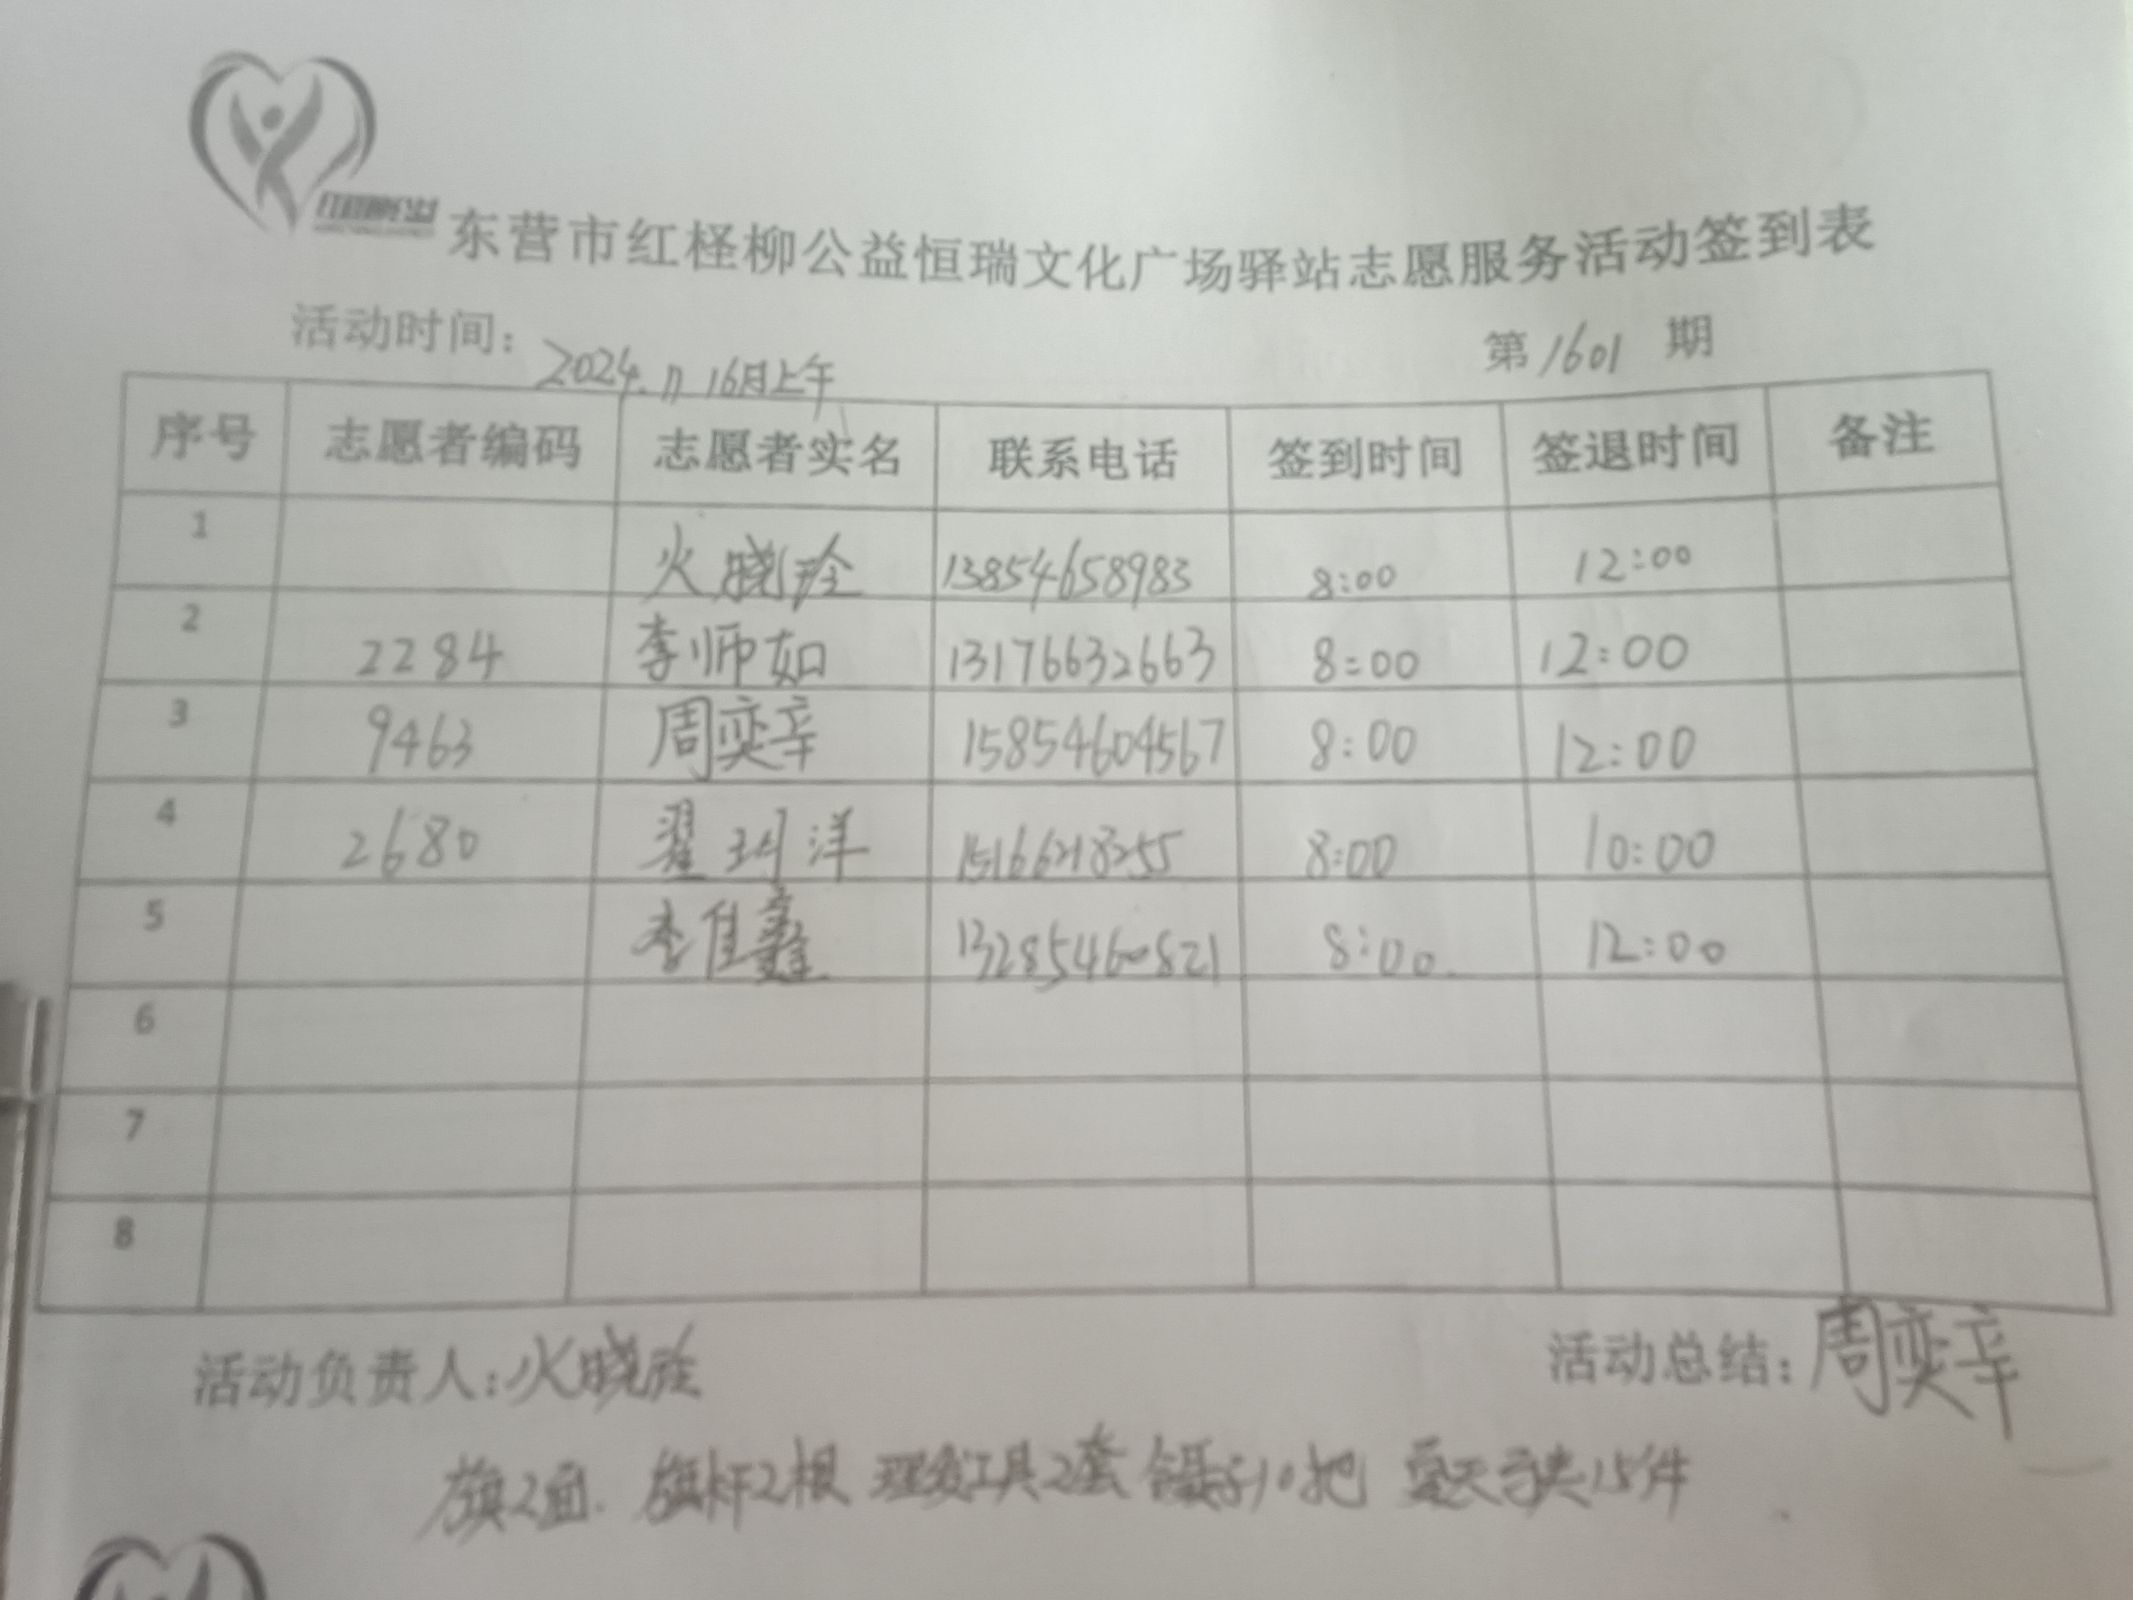 东营市红柽柳公益恒瑞文化广场驿站志愿服务活动签到表
活动时间：2024.7.16日上午 第1601期
序号 志愿者编码 志愿者实名 联系电话 签到时间 签退时间 备注
1 火晓玲 13854658983 8:00 12:00
2 2284 李师如 13176632663 8:00 12:00
3 9463 周奕辛 15854604567 8:00 12:00
4 2680 翟珂洋 15166218255 8:00 10:00
5 李佳鑫 13285460821 8:00 12:00
6
7
8
活动负责人：火晓玲 活动总结：周奕辛
旗2面. 旗杆2根 理发工具2套 10把 夏天 15件